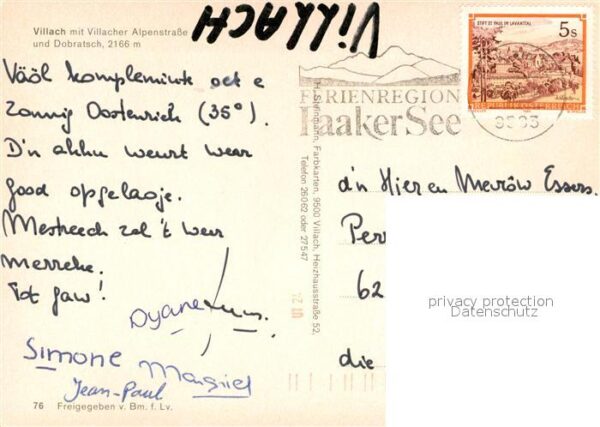 Villach mit Villacher Alpenstraße
und Dobratsch, 2166 m
VILLACH
STIFT ST. PAUL IM LAVANTTAL
5s
REPUBLIK ÖSTERREICH
FERIENREGION
Faaker See
9583
Vääl komplemint oet e
zonnig Oostenriech (35°).
D'n akku weurt weer
good opgelaoje.
Mestreech zal 't weer
merreke.
Tot gaw!
Dyane
Simone
Jean-Paul
76 Freigegeben v. Bm. f. Lv.
H. Steinmann, Farbkarten, 9500 Villach, Heizhausstraße 52,
Telefon 26062 oder 27547
d'n Hier en Mevròw Essers
Per
62
die
privacy protection
Datenschutz